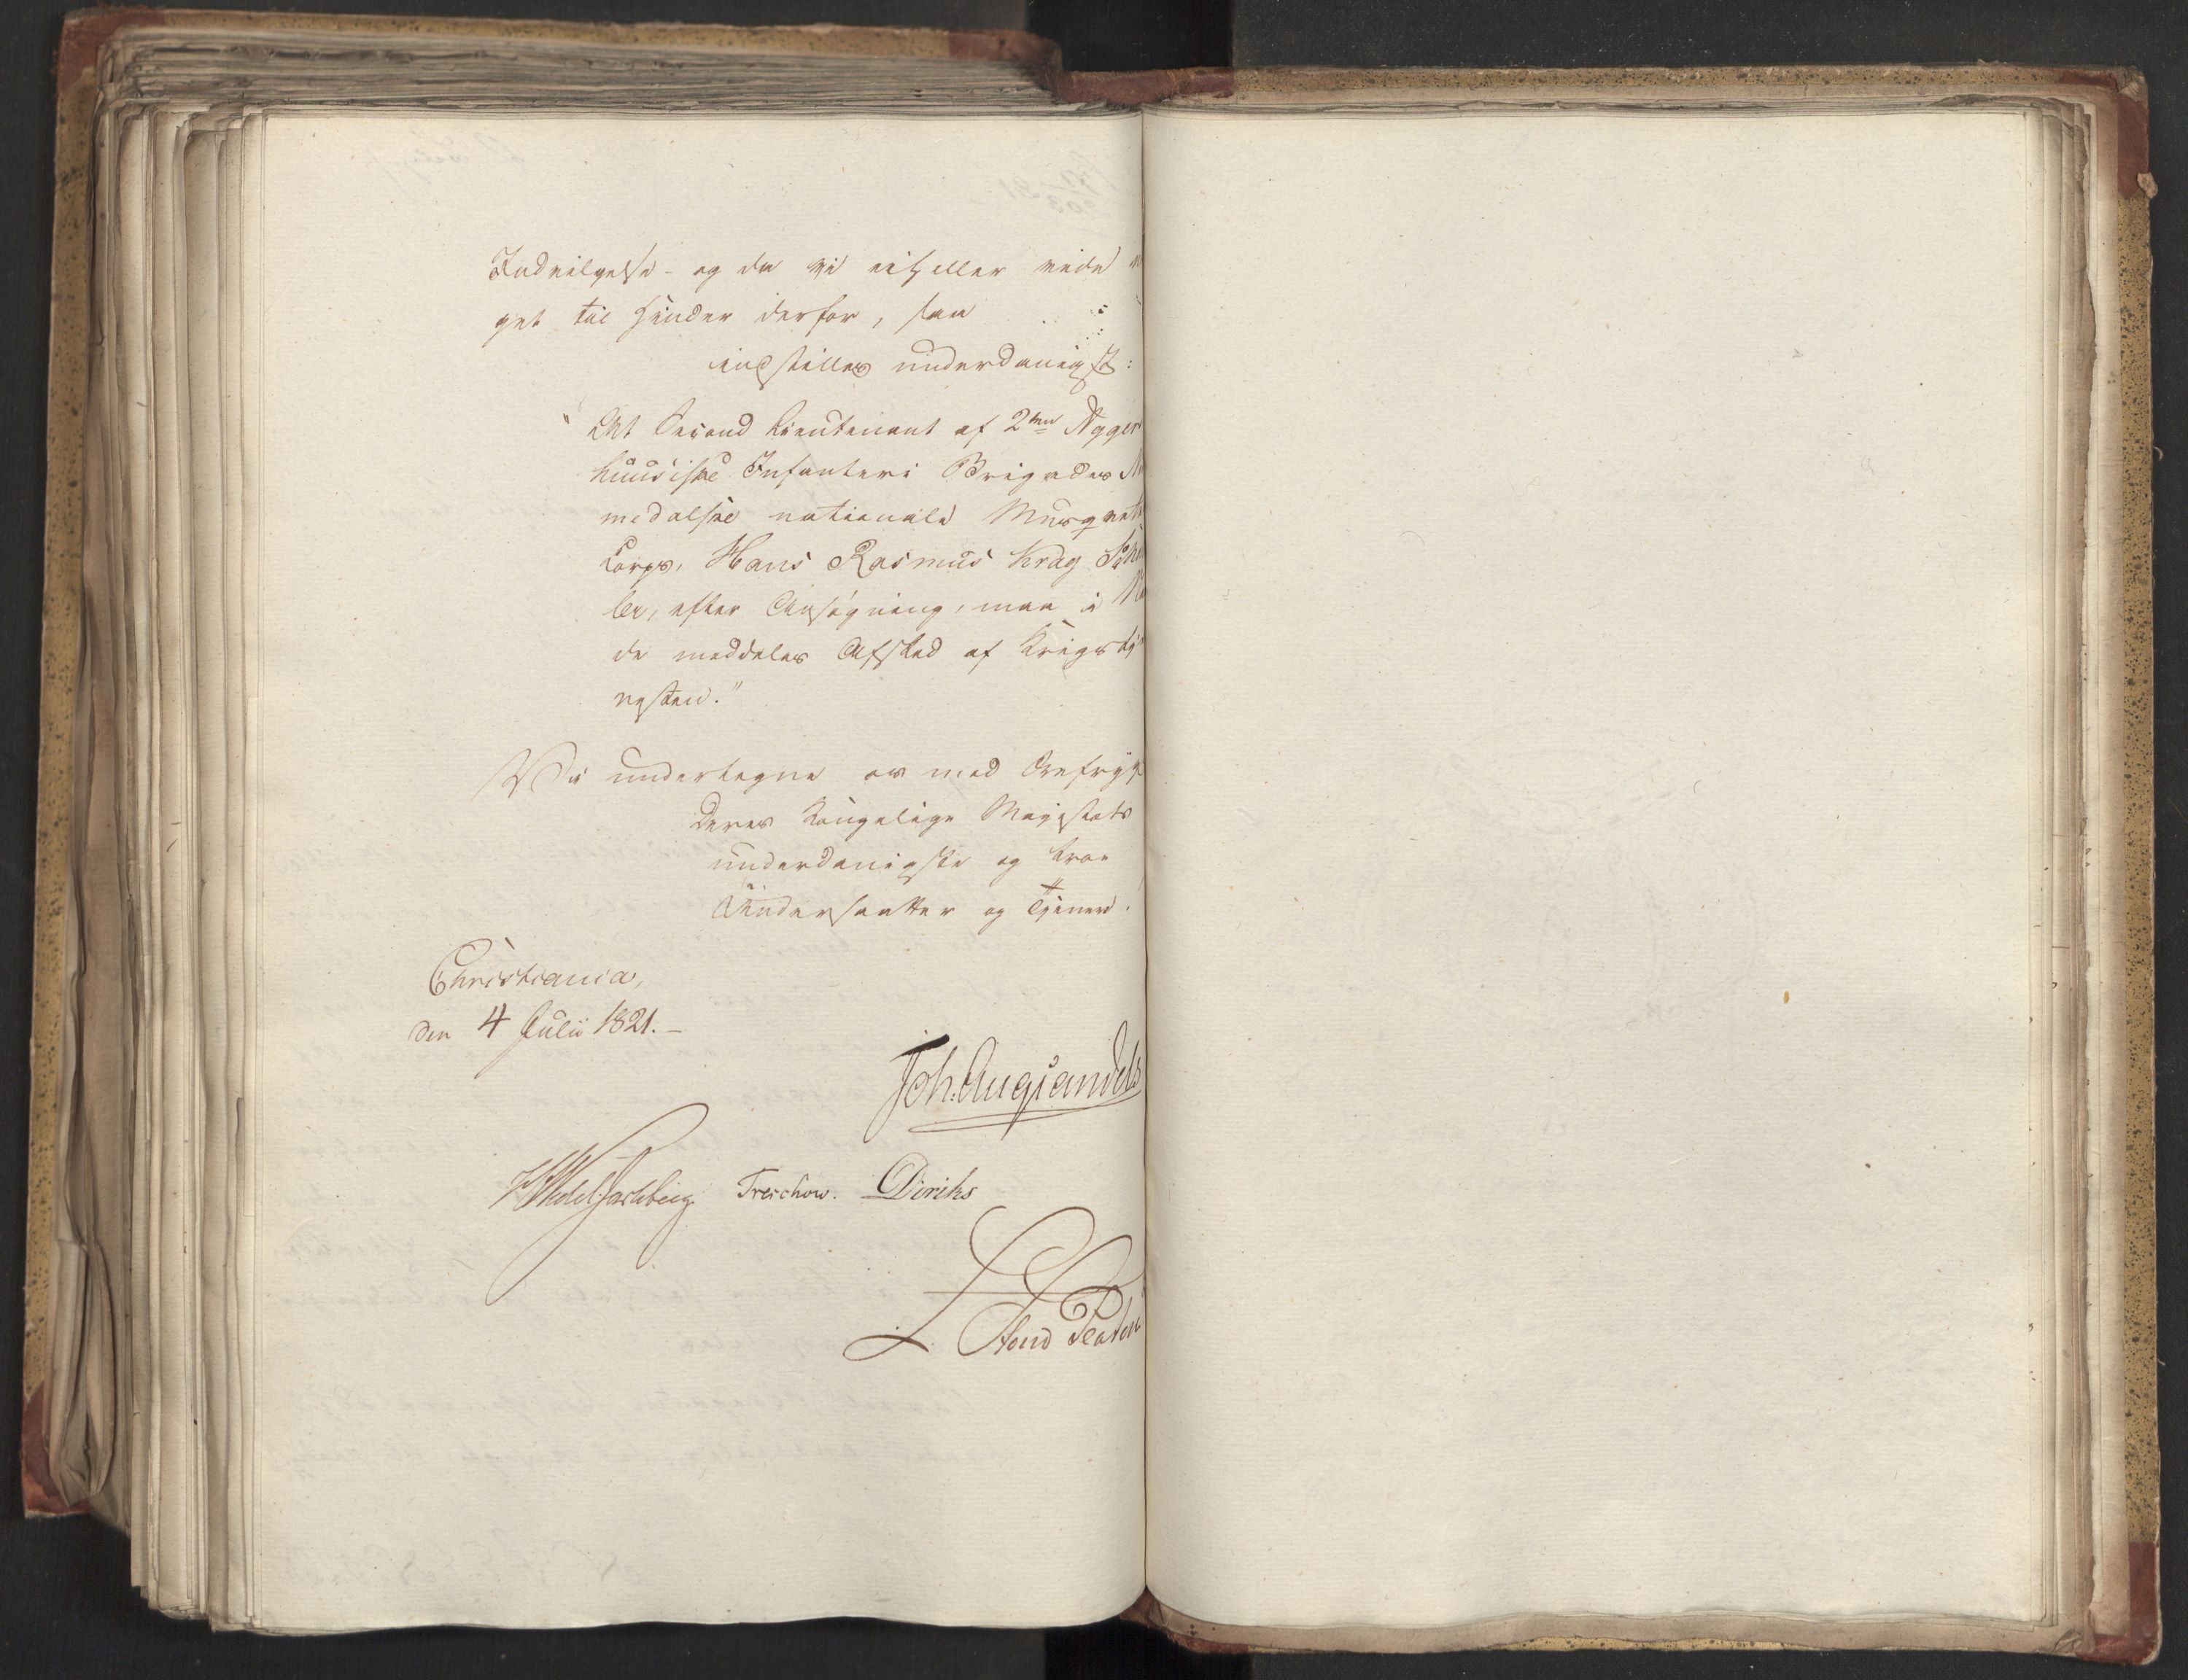 Indvilgelse - og da vi ei heller vide n
get til Hinder derfor, saa
indstilles underdanigst:
"At Second Lieutenant af 2den Agger
huusiske Infanteri Brigades N
medalske nationale Musquet
Corps, Hans Rasmus Krag Sch
ler, efter Ansøgning, maa i Na
de meddeles Afsked af Krigstje
nesten."
Vi undertegne os med Ærefrygt
Deres Kongelige Majestæts
underdanigste og troe
Undersaatter og Tjenere.
Christiania,
den 4 Julii 1821.-
Joh: Aug Sandels
HWedel Jarlsberg. Treschow. Diriks
L. Stoud Platou